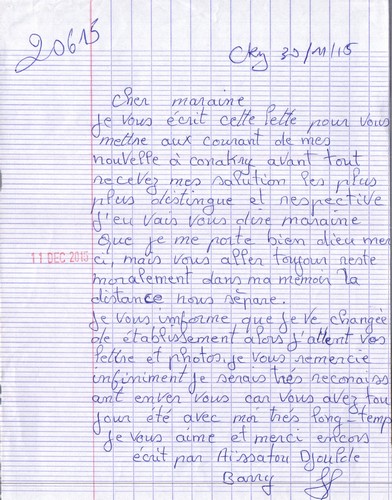 20615
Cky 30/11/15
Cher maraine
je vous écrit cette lette pour vous
mettre aux courant de mes
nouvelle à conakry avant tout
recevez mes salution les plus
plus distingue et respective
j'eu vais vous dire maraine
que je me porte bien dieu mer
ci, mais vous aller toujour reste
11 DEC 2015
moralement dans ma memoir la
distance nous sépare.
je vous informe que je ve changée
de établissement alors j'attent vos
lettre et photos, je vous remercie
infiniment je serais très reconaiss
ant enver vous car vous avez tou
jour été avec moi très long-temp
je vous aime et merci encors
écrit par Aissatou Djoulde
Barry